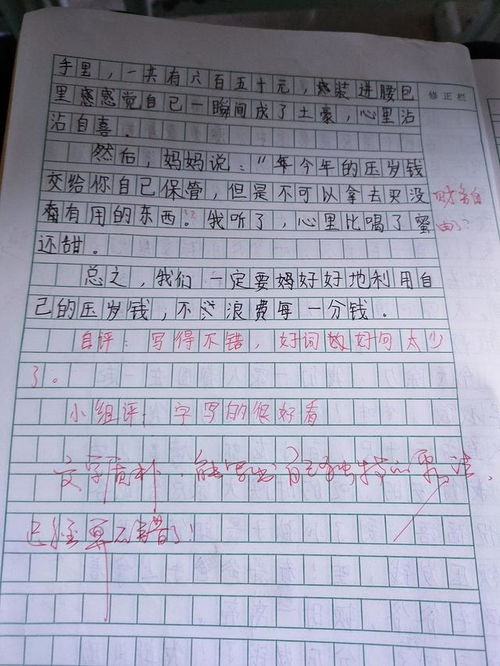 手里，一共有六百五十元，装进腰包
修正栏
里感觉自己一瞬间成了土豪，心里沾
沾自喜．
然后，妈妈说："今年的压岁钱
交给你自己保管，但是不可以拿去买没
有用的东西。"我听了，心里比喝了蜜
还甜。
总之，我们一定要好好地利用自
己的压岁钱，不浪费每一分钱．
自评：写得不错，好词好句太少
了。
小组评：字写的很好看
文字质朴．能写出自己独特的
已经算不错了！